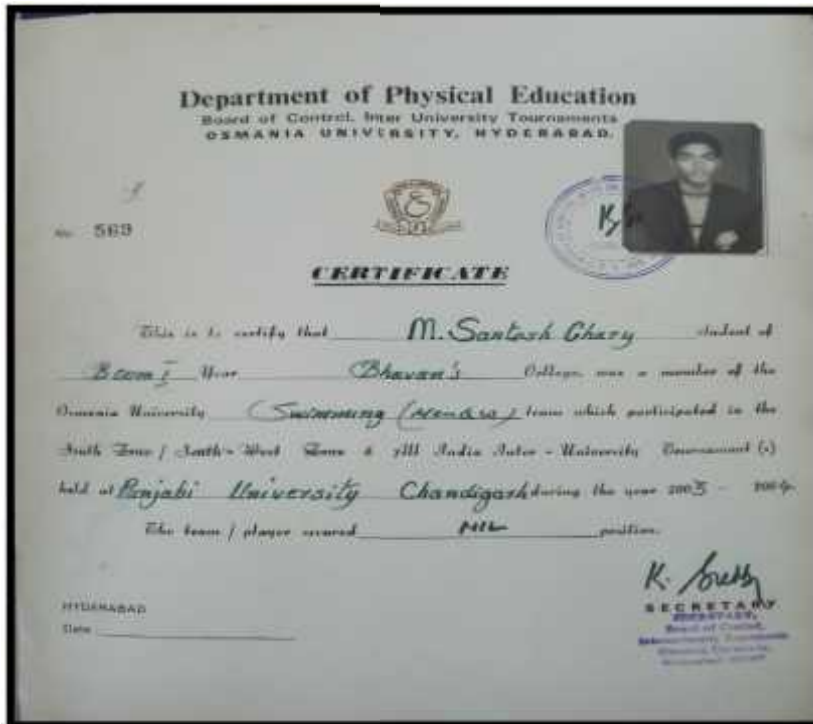 Department of Physical Education
Board of Control, Inter University Tournaments
OSMANIA UNIVERSITY, HYDERABAD.
No. 569
CERTIFICATE
This is to certify that M. Santosh Chary student of
Bcom I Year Bhavan's College, was a member of the
Osmania University Swimming team which participated in the
South Zone / South-West Zone & All India Inter - University Tournament (s)
held at Punjabi University Chandigarh during the year 2003 - 2004.
The team / player secured NIL position.
SECRETARY
SECRETARY,
Board of Control,
HYDERABAD
Date